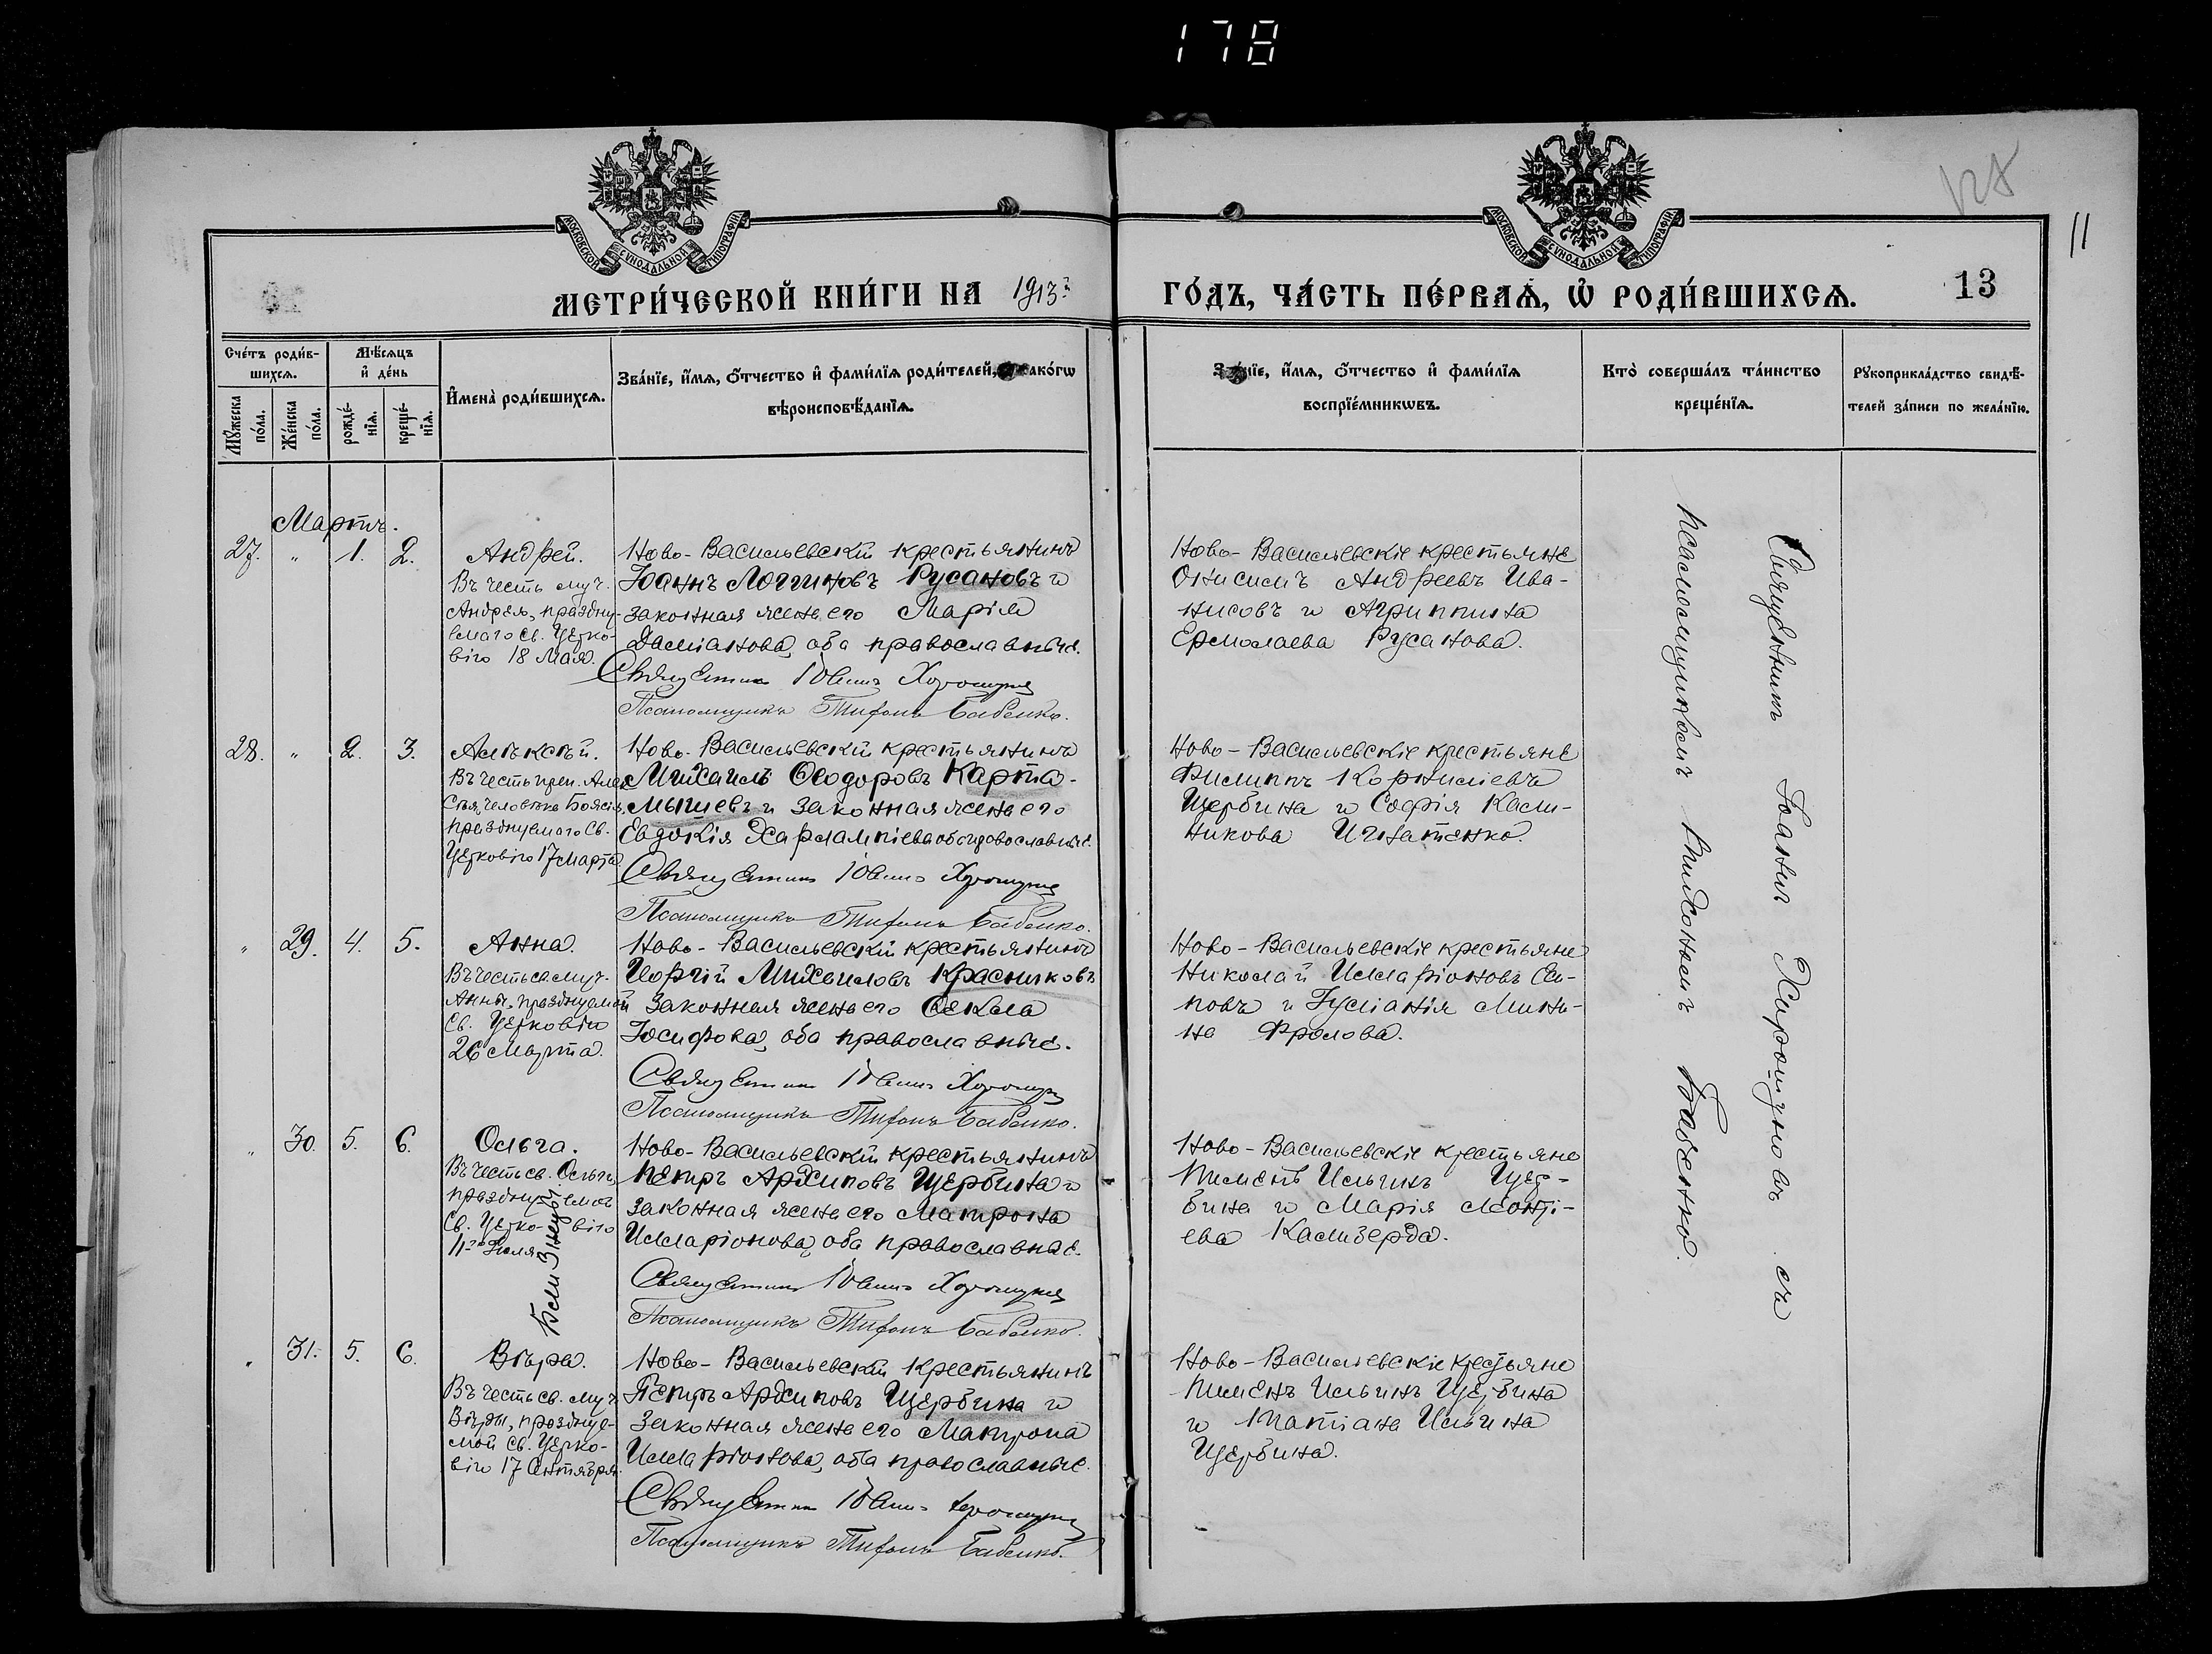 178
11
МОСКОВСКОЙ СѴНОДАЛЬНОЙ ТИПОГРАФІИ
МОСКОВСКОЙ СѴНОДАЛЬНОЙ ТИПОГРАФІИ
МЕТРИ́ЧЕСКОЙ КНИ́ГИ НА 1913 ГО́ДЪ, ЧА́СТЬ ПЕ́РВАѦ, Ѡ҆ РОДИ́ВШИХСѦ. 13
Сче́тъ роди́в-
шихсѧ.
Мѣ́сѧцъ
и҆ де́нь
Мꙋ́жеска
по́ла.
Же́нска
по́ла.
рожде́-
нїѧ.
креще́-
нїѧ.
И҆мена̀ роди́вшихсѧ.
Зва́нїе, и҆́мѧ, ѻ҆́тчество и҆ фами́лїѧ роди́телей, ако́гѡ
вѣроисповѣ́данїѧ.
нїе, и҆́мѧ, ѻ҆́тчество и҆ фами́лїѧ
воспрїе́мникѡвъ.
Кто̀ соверша́лъ та́инство
креще́нїѧ.
Рꙋкоприкла́дство свидѣ́-
телей за́писи по жела́нїю.
Мартъ.
27. " 1. 2.
Андрей.
Въ честь муч.
Андрея, праздну-
емаго Св. Церко-
вію 18 Мая.
Ново-Васильевскій крестьянинъ
Іоаннъ Логгиновъ Русановъ и
законная жена его Марія
Даміанова, оба православные.
Священникъ Іоаннъ Хорошунъ
Псаломщикъ Тихонъ Бабенко.
Ново-Васильевскіе крестьяне
Онисимъ Андреевъ Ива-
нисовъ и Агриппина
Ермолаева Русанова.
28. " 2. 3.
Алексѣй.
Въ честь преп. Алек
сѣя, человѣка Божія,
празднуемаго Св.
Церковію 17 Марта.
Ново-Васильевскій крестьянинъ
Михаилъ Ѳеодоровъ Карта-
мышевъ и законная жена его
Евдокія Харлампіева, оба православные.
Священникъ Іоаннъ Хорошунъ
Псаломщикъ Тихонъ Бабенко.
Ново-Васильевскіе крестьяне
Филиппъ Корниліевъ
Щербина и Софія Кали-
никова Игнатенко.
" 29. 4. 5.
Анна.
Въ честь св. муч.
Анны, празднуемой
Св. Церковію
26 Марта.
Ново-Васильевскій крестьянинъ
Георгій Михаиловъ Красниковъ
и законная жена его Ѳекла
Іосифова, оба православные.
Священникъ Іоаннъ Хорошунъ
Псаломщикъ Тихонъ Бабенко.
Ново-Васильевскіе крестьяне
Николай Илларіоновъ
и Іуліанія Мини-
на Фролова.
" 30. 5. 6.
Ольга.
Въ честь св. Ольги,
празднуемой
Св. Церковію
11го Іюля
Близнецы
Ново-Васильевскій крестьянинъ
Петръ Архиповъ Щербина и
законная жена его Матрона
Илларіонова, оба православные.
Священникъ Іоаннъ Хорошунъ
Псаломщикъ Тихонъ Бабенко.
Ново-Васильевскіе крестьяне
Пименъ Ильинъ Щер-
бина и Марія Леонті-
ева
" 31. 5. 6.
Вѣра.
Въ честь св. муч.
Вѣры, праздуе-
мой Св. Церко-
вію 17 Сентября.
Ново-Васильевскій крестьянинъ
Петръ Архиповъ Щербина и
законная жена его Матрона
Илларіонова, оба православные.
Священникъ Іоаннъ Хорошунъ
Псаломщикъ Тихонъ Бабенко.
Ново-Васильевскіе крестьяне
Пименъ Ильинъ Щербина
и Татіана Ильина
Щербина.
Священникъ Іоаннъ Хорошуновъ съ
псаломщикомъ Тихономъ Бабенко.